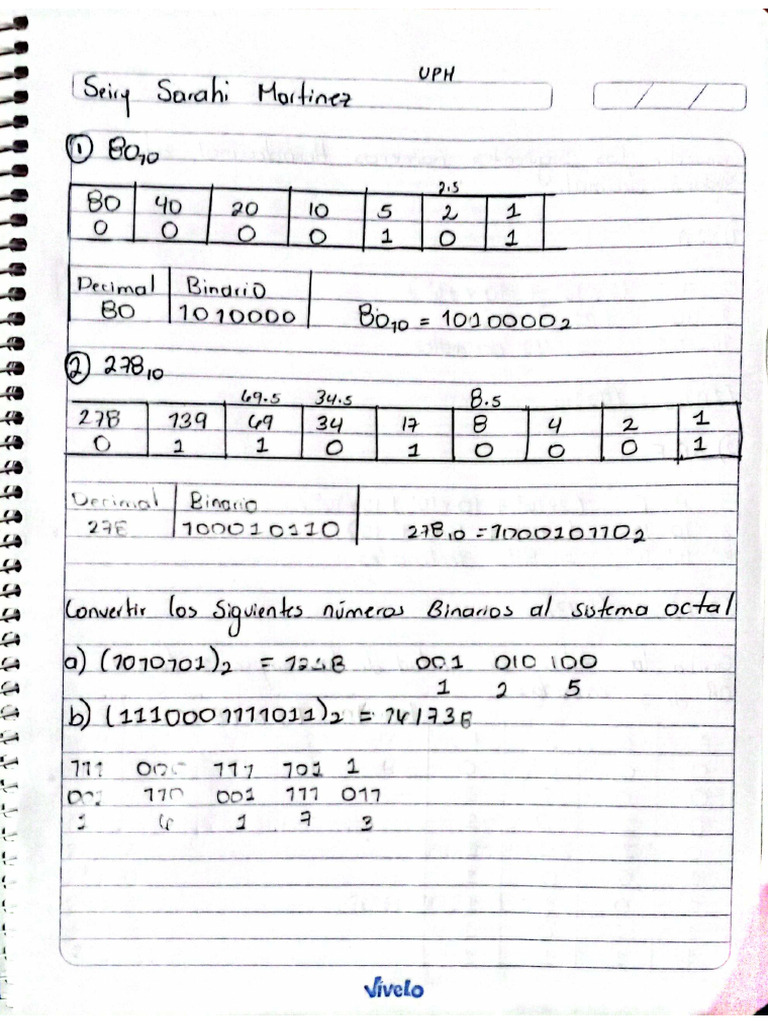 UPH
Seiry Sarahi Martinez
① 80₁₀
2.5
80 40 20 10 5 2 1
0 0 0 0 1 0 1
Decimal Binario
80 1010000
80₁₀ = 1010000₂
② 278₁₀
69.5 34.5 8.5
278 139 69 34 17 8 4 2 1
0 1 1 0 1 0 0 0 1
Decimal Binario
278 100010110
278₁₀ = 100010110₂
Convertir los Siguientes números Binarios al sistema octal
a) (1010101)₂ = 001 010 100
1 2 5
b) (1110001111011)₂ = 16173₈
111 000 111 101 1
001 110 001 111 011
1 6 1 7 3
Vívelo